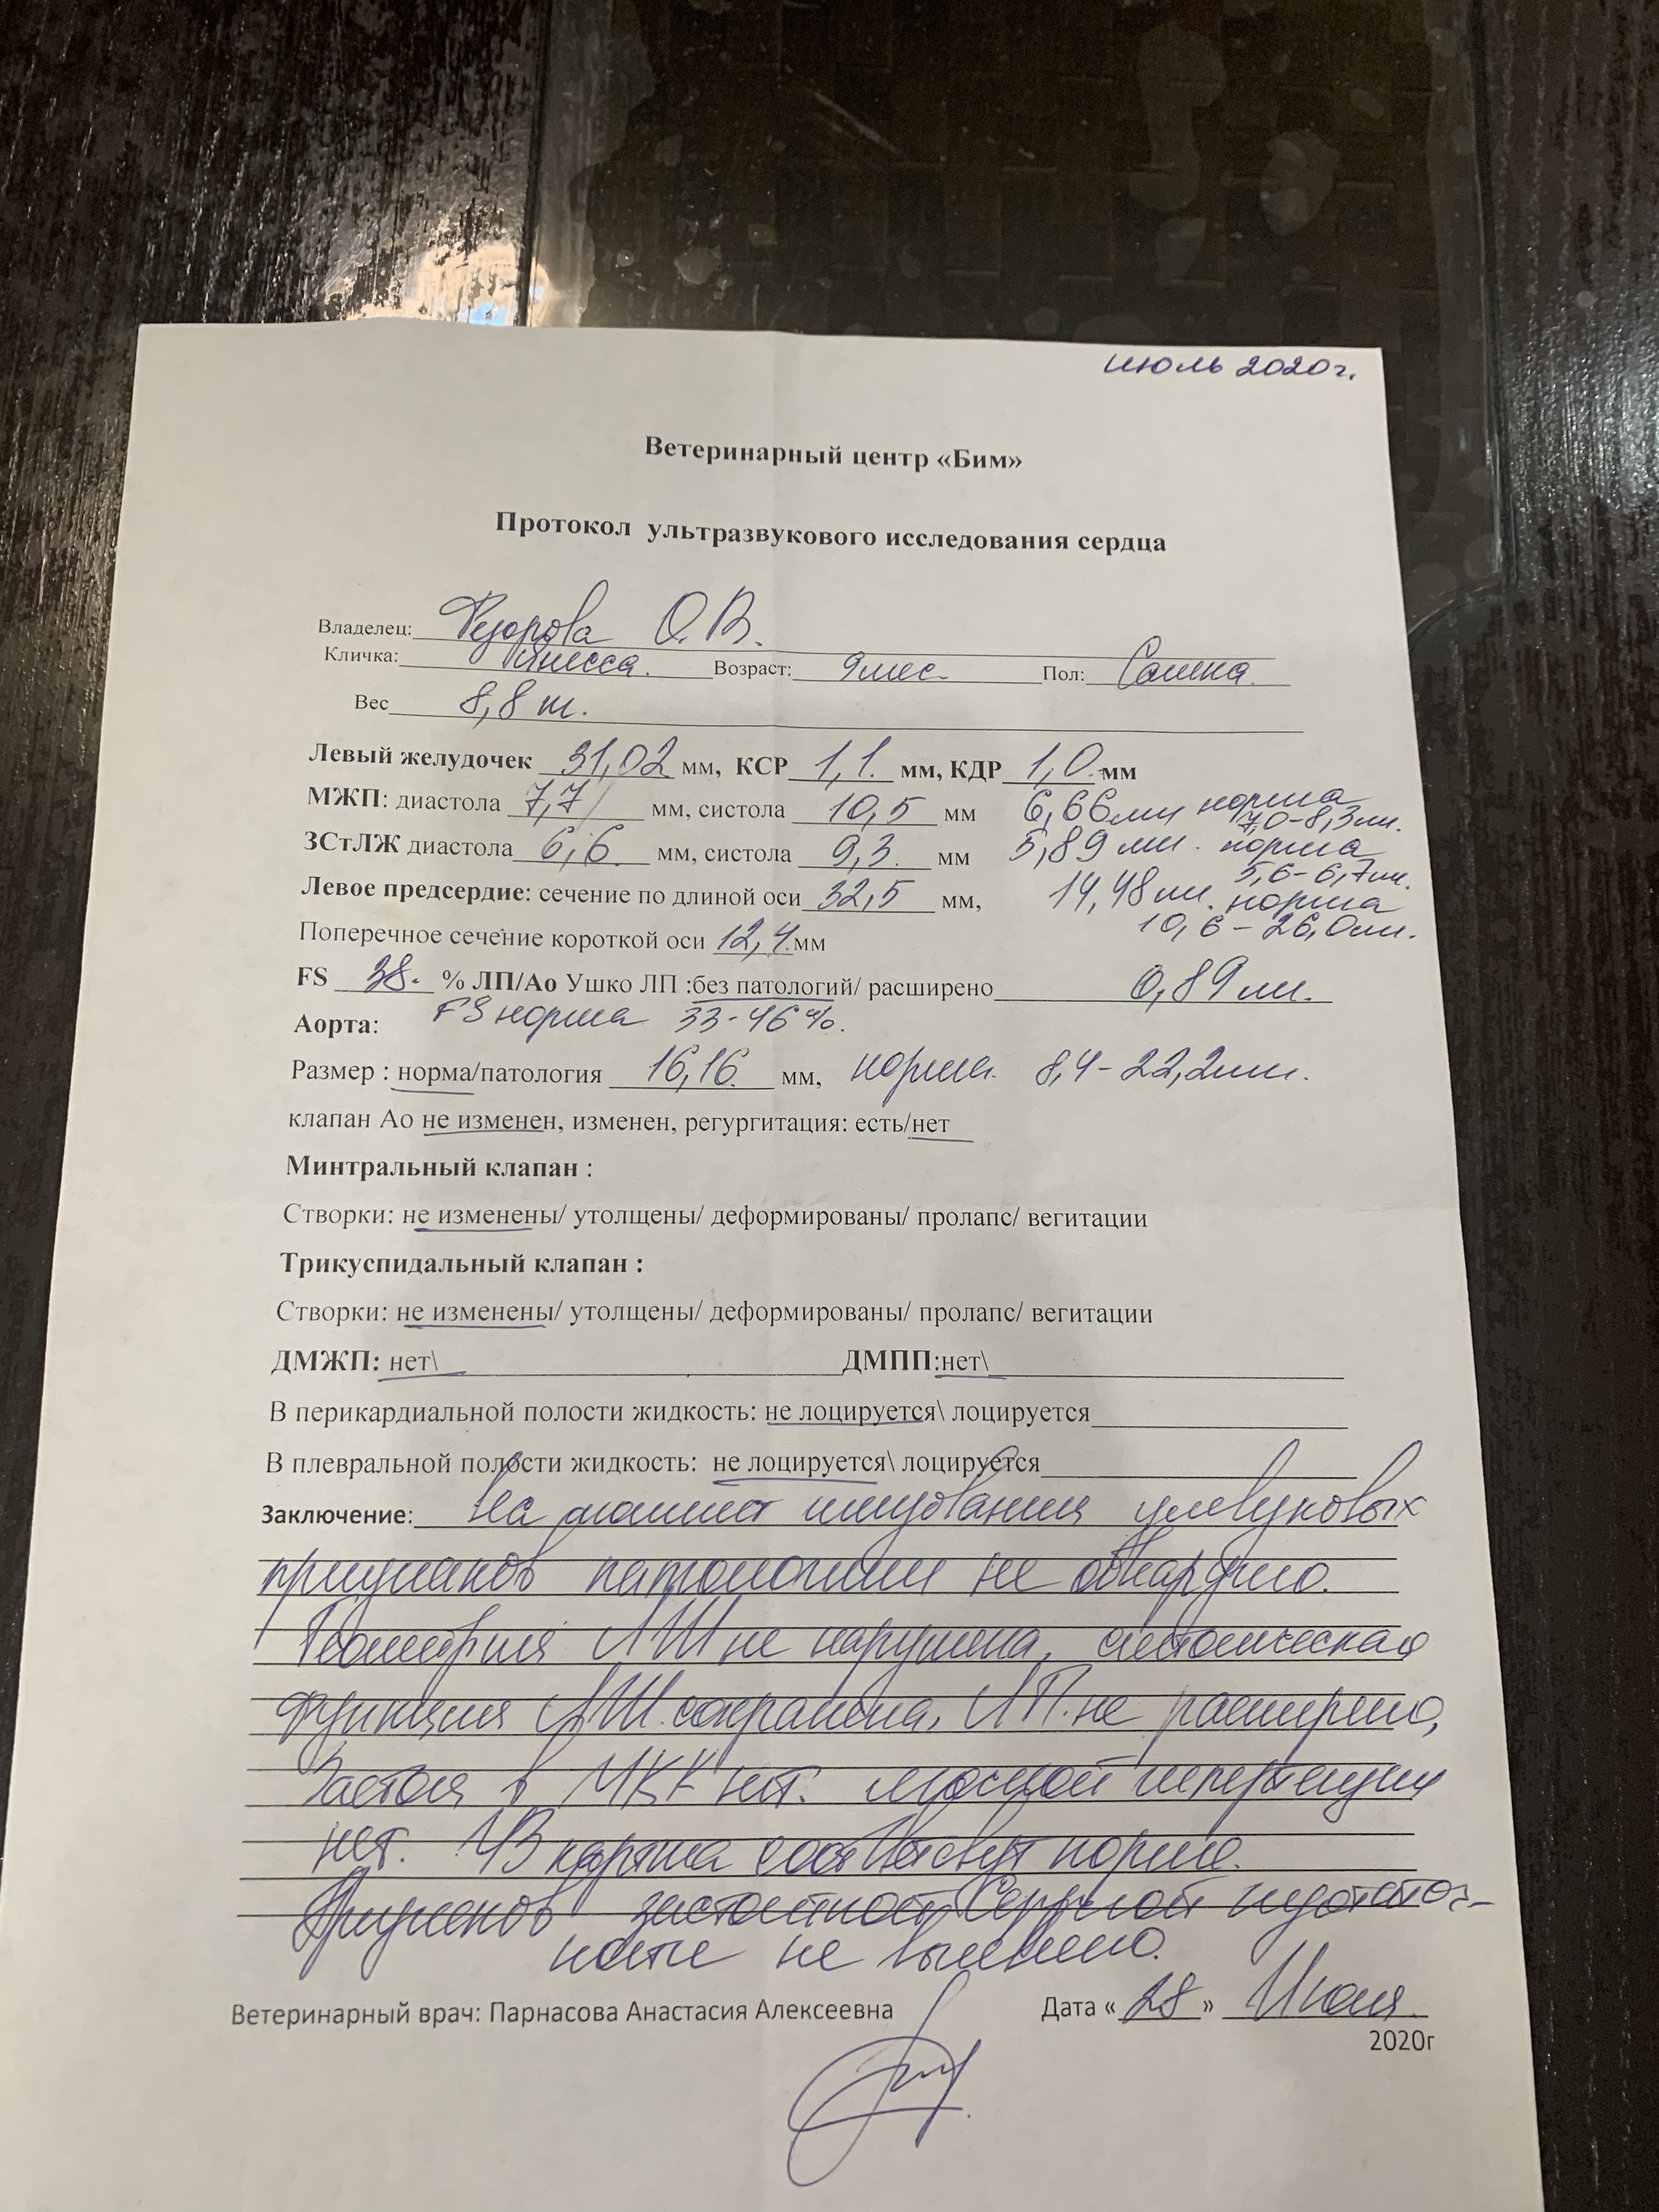 июль 2020г.
Ветеринарный центр «Бим»
Протокол ультразвукового исследования сердца
Владелец: Федорова О.В.
Кличка: Возраст: 9мес. Пол: Самка.
Вес 8,8 кг.
Левый желудочек 31,02 мм, КСР 1,1. мм, КДР 1,0 мм
МЖП: диастола 7,7 мм, систола 10,5 мм 6,66мм норма
7,0-8,3мм.
ЗСтЛЖ диастола 6,6 мм, систола 9,3 мм 5,89мм. норма
5,6-6,7мм.
Левое предсердие: сечение по длиной оси 32,5 мм, 14,48мм. норма
10,6-26,0мм.
Поперечное сечение короткой оси 12,4 мм
FS 38. % ЛП/Ао Ушко ЛП :без патологий/ расширено 0,89мм.
Аорта: FS норма 33-46%.
Размер : норма/патология 16,16 мм, норма 8,4-22,2мм.
клапан Ао не изменен, изменен, регургитация: есть/нет
Минтральный клапан :
Створки: не изменены/ утолщены/ деформированы/ пролапс/ вегитации
Трикуспидальный клапан :
Створки: не изменены/ утолщены/ деформированы/ пролапс/ вегитации
ДМЖП: нет\ ДМПП:нет\
В перикардиальной полости жидкость: не лоцируется\ лоцируется
В плевральной полости жидкость: не лоцируется\ лоцируется
Заключение: На момент
признаков патологии не
Геометрия ЛЖ не нарушена, систолическая
функция ЛЖ сохранена, ЛП не расширено,
Застоя в МКК нет.
нет. УЗ картина норме.
Признаков сердечной
не выявлено.
Ветеринарный врач: Парнасова Анастасия Алексеевна Дата « 28 » Июля
2020г